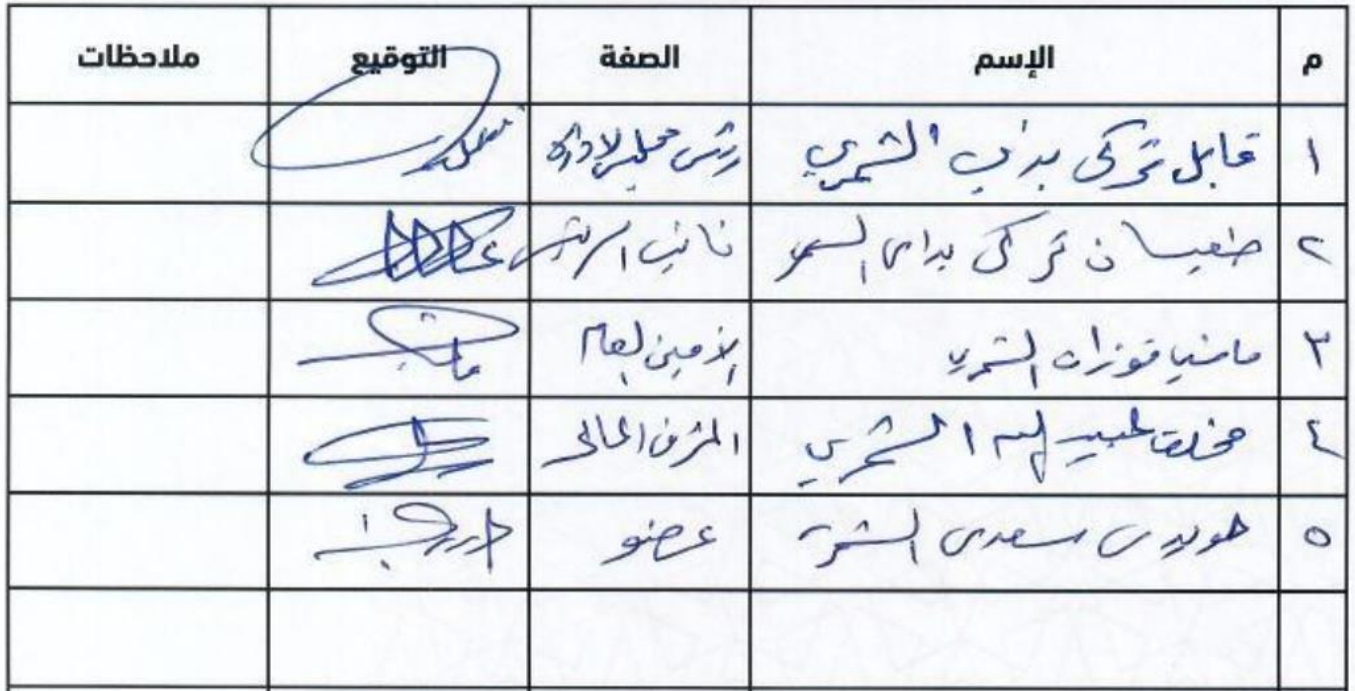 م الإسم الصفة التوقيع ملاحظات
١ قابل تركي بداي الشمري رئيس مجلس الإدارة
٢ تركي بداي نائب الرئيس
٣ الشمري الأمين العام
٤ مخلف عبيد الشمري المشرف المالي
٥ هويدي سعدي الشمري عضو